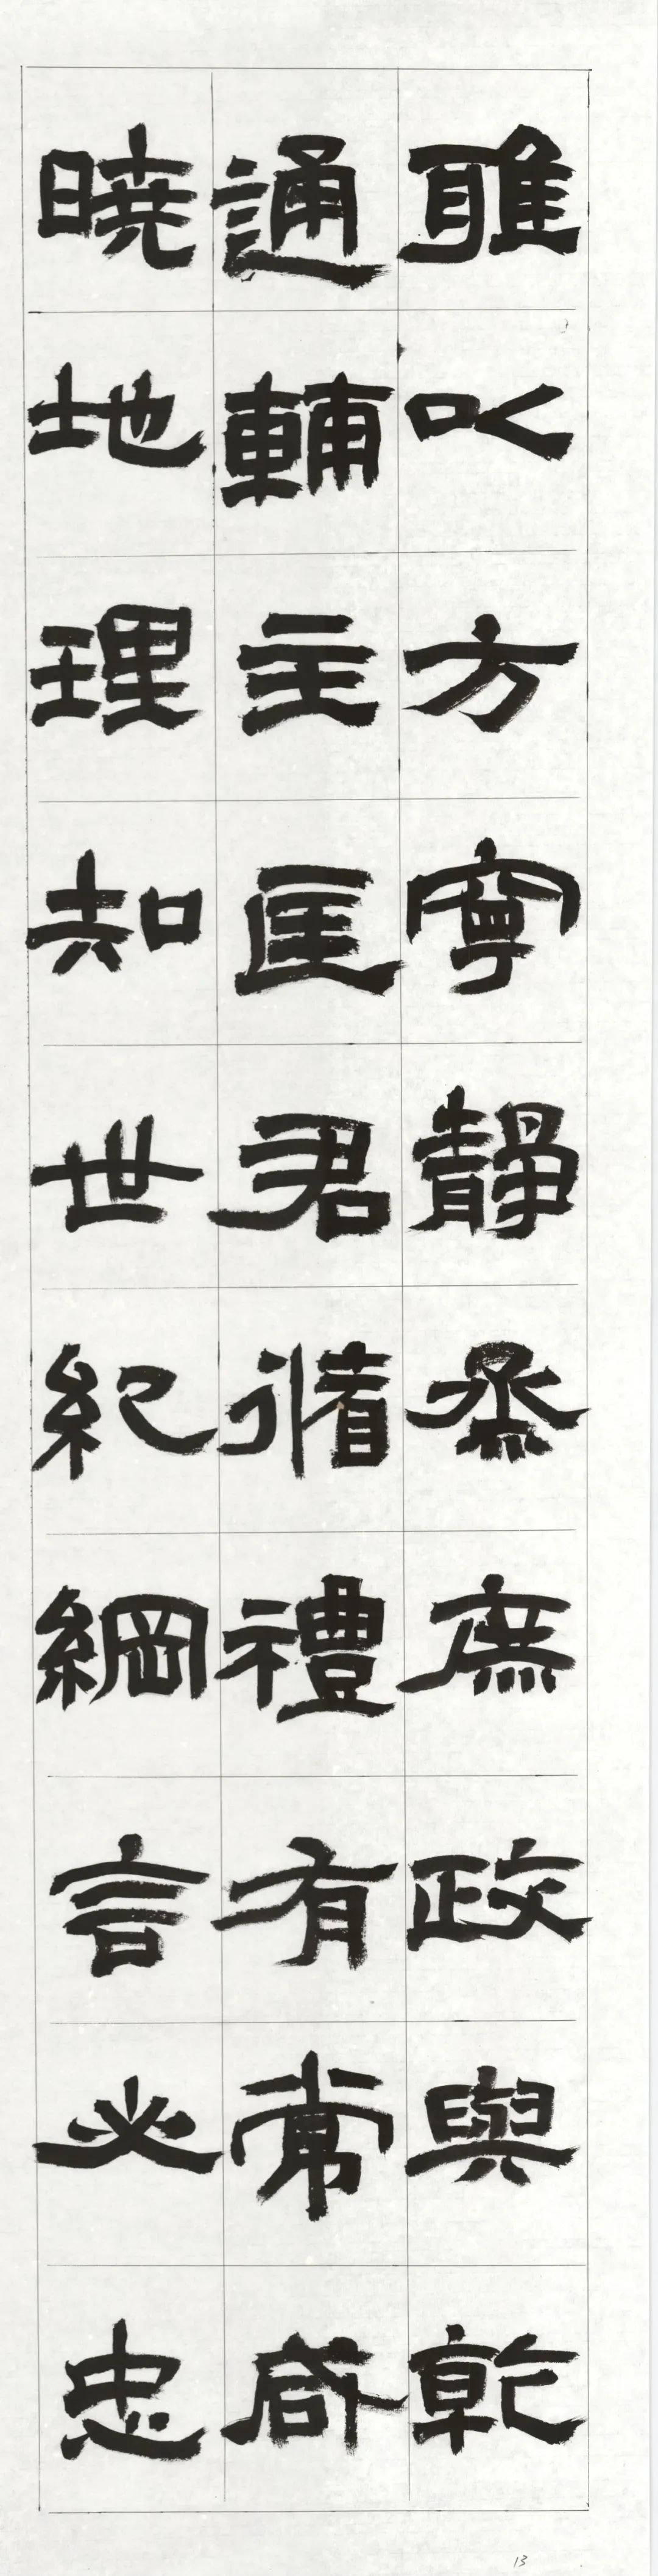 雅以方寧靜烝庶政與乾
通輔主匡君循禮有常咸
曉地理知世紀綱言必忠
13